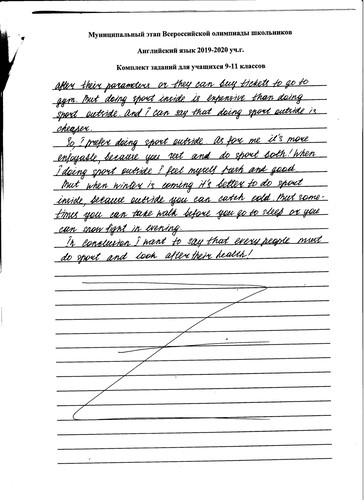 Муниципальный этап Всероссийской олимпиады школьников
Английский язык 2019-2020 уч.г.
Комплект заданий для учащихся 9-11 классов
after their parameters or they can buy tickets to go to
gym. But doing sport inside is expensive than doing
sport outside. And I can say that doing sport outside is
cheaper.
So, I prefer doing sport outside. As for me it's more
enjoyable, because you rest and do sport both! When
I doing sport outside I feel myself fresh and good.
But when winter is coming it's better to do sport
inside, because outside you can catch cold. But some-
times you can take walk before you go to sleep or you
can snow fight in evening.
In conclusion I want to say that every people must
do sport and look after their health!